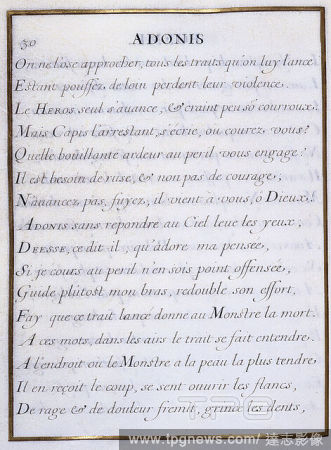 30
ADONIS
On ne l'ose approcher, tous les traits qu'on luy lance
Estant poussez de loin perdent leur violence.
Le HEROS seul s'auance, & craint peu son courroux.
Mais Capis l'arrestant, s'écrie, ou courez vous?
Quelle bouillante ardeur au peril vous engage?
Il est besoin de ruse, & non pas de courage,
N'auancez pas, fuyez, il vient à vous, ô Dieux!
ADONIS sans répondre au Ciel leue les yeux;
DEESSE, ce dit il, qu'adore ma pensée,
Si je cours au peril n'en sois point offensée,
Guide plûtost mon bras, redouble son effort,
Fay que ce trait lancé donne au Monstre la mort.
A ces mots, dans les airs le trait se fait entendre,
A l'endroit où le Monstre a la peau la plus tendre,
Il en reçoit le coup, se sent ouurir les flancs,
De rage & de douleur fremit, grince les dents,
TPG
www.tpgnews.com / 達志影像